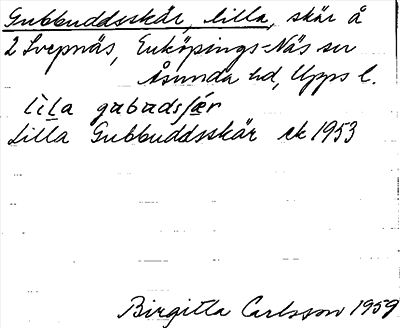 Gubbuddsskär, lilla, skär å
2 Svepnäs, Enköpings-Näs sn
Åsunda hd, Upps l.
lìla gubudsʃær
Lilla Gubbuddsskär ek 1953
Birgitta Carlsson 1959